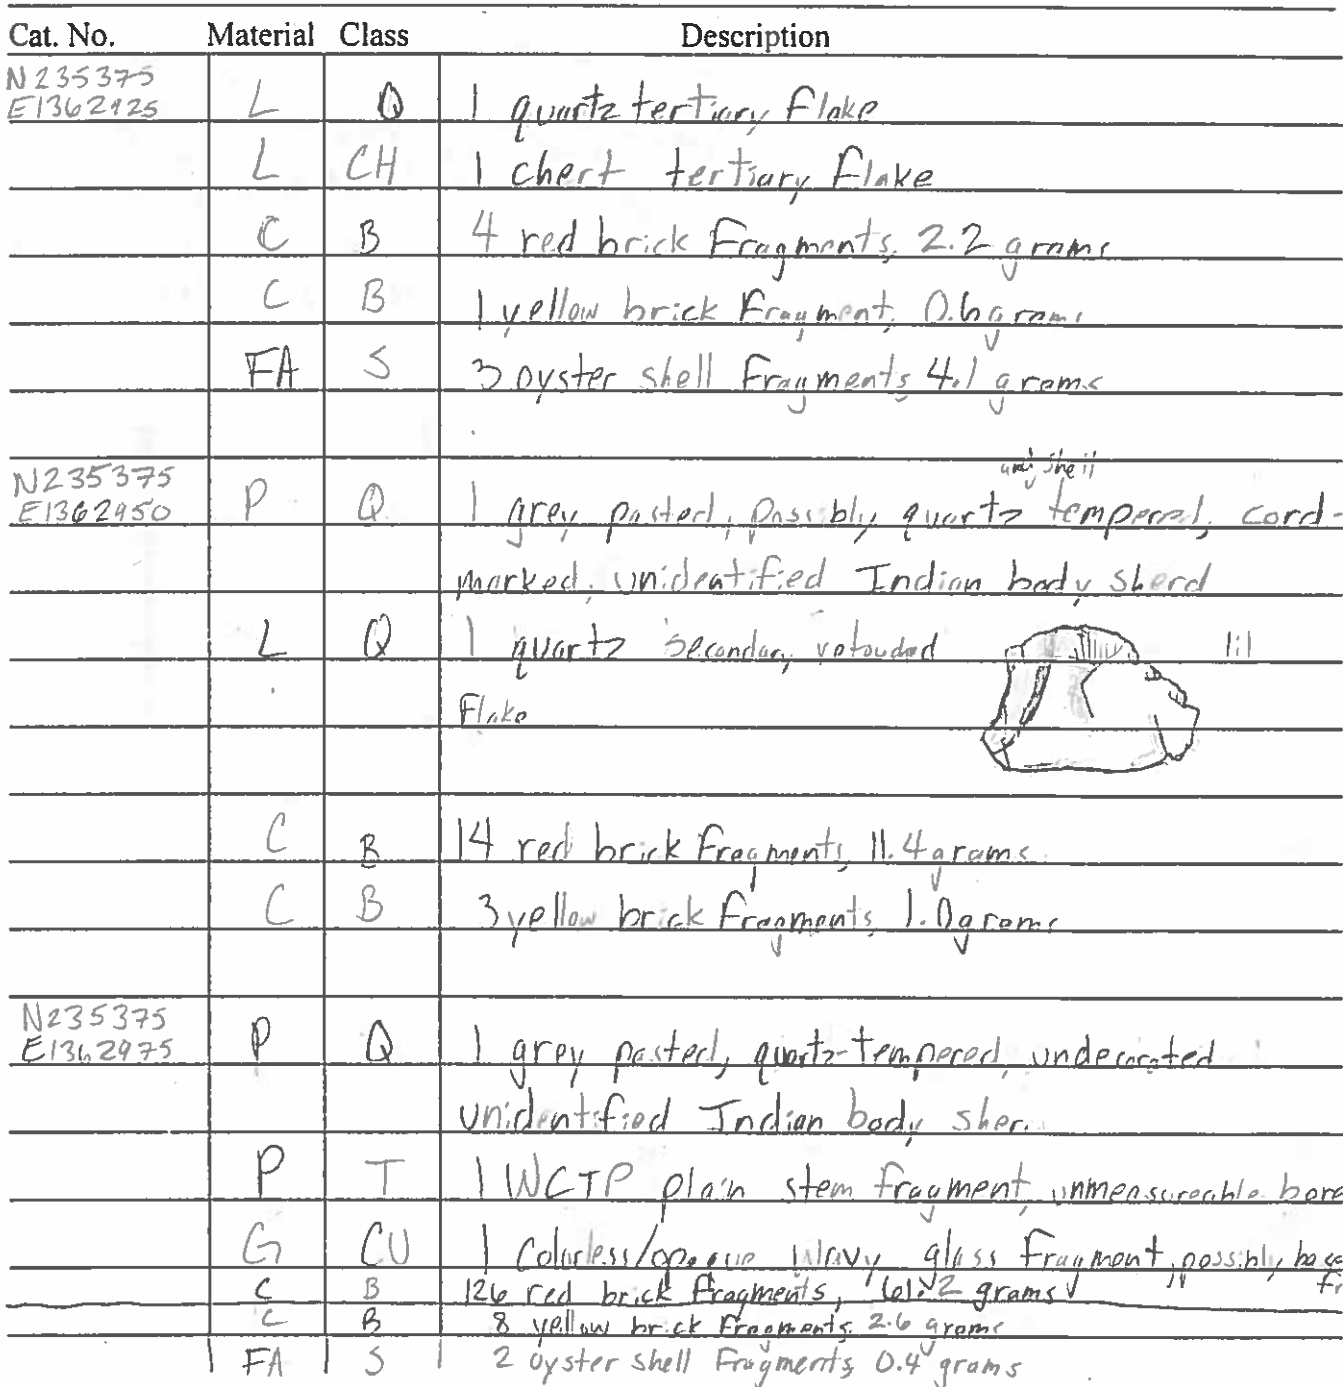 Cat. No. Material Class Description
N235375
E1362925 L Q 1 quartz tertiary flake
L CH 1 chert tertiary flake
C B 4 red brick fragments, 2.2 grams
C B 1 yellow brick fragment, 0.6 grams
FA S 3 oyster shell fragments, 4.1 grams
and shell
N235375
E1362950 P Q 1 grey pasted, possibly quartz tempered, cord-
marked, unidentified Indian body sherd
L Q 1 quartz secondary retouched
flake
C B 14 red brick fragments, 11.4 grams
C B 3 yellow brick fragments, 1.0 grams
N235375
E1362975 P Q 1 grey pasted, quartz-tempered, undecorated
unidentified Indian body sher
P T 1 WCTP plain stem fragment, unmeasureable bore
G CU 1 Colorless/opaque wavy glass fragment, possibly base
C B 126 red brick fragments, 61.2 grams
C B 8 yellow brick fragments, 2.6 grams
FA S 2 oyster shell fragments, 0.4 grams